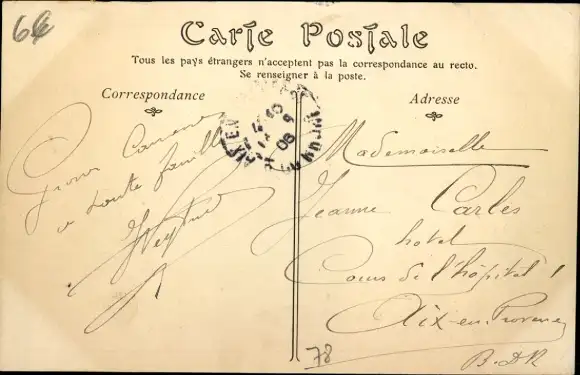 Carte Postale
Tous les pays étrangers n'acceptent pas la correspondance au recto.
Se renseigner à la poste.
Correspondance
Adresse
a toute famille
Mademoiselle
Jeanne Carles
hotel
Cours de l'hôpital 1
Aix-en-Provence
B-DR
78